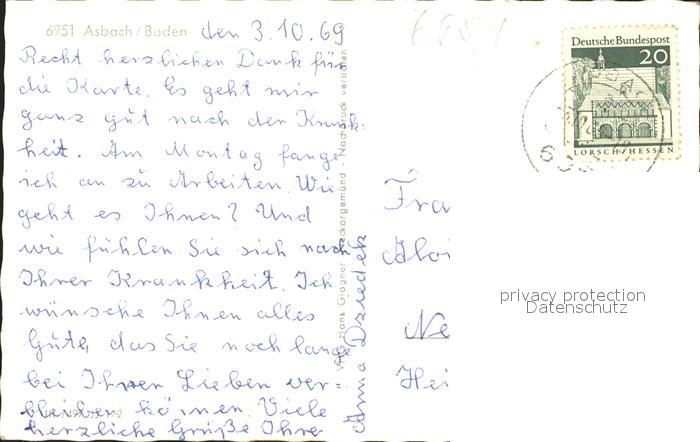 6951 Asbach/Baden den 3.10.69
Recht herzlichen Dank für
die Karte. Es geht mir
ganz gut nach der Krank-
heit. Am Montag fange
ich an zu Arbeiten. Wie
geht es Ihnen? Und
wie fühlen Sie sich nach
Ihrer Krankheit. Ich
wünsche Ihnen alles
Gute, das Sie noch lange
bei Ihren Lieben ver-
bleiben können. Viele
herzliche Grüße Ihre
Anna Dziedek
Hans Glogner Neckargemünd · Nachdruck verboten
Deutsche Bundespost
20
LORSCH/HESSEN
Fra
Aloi
Ne
Hei
privacy protection
Datenschutz